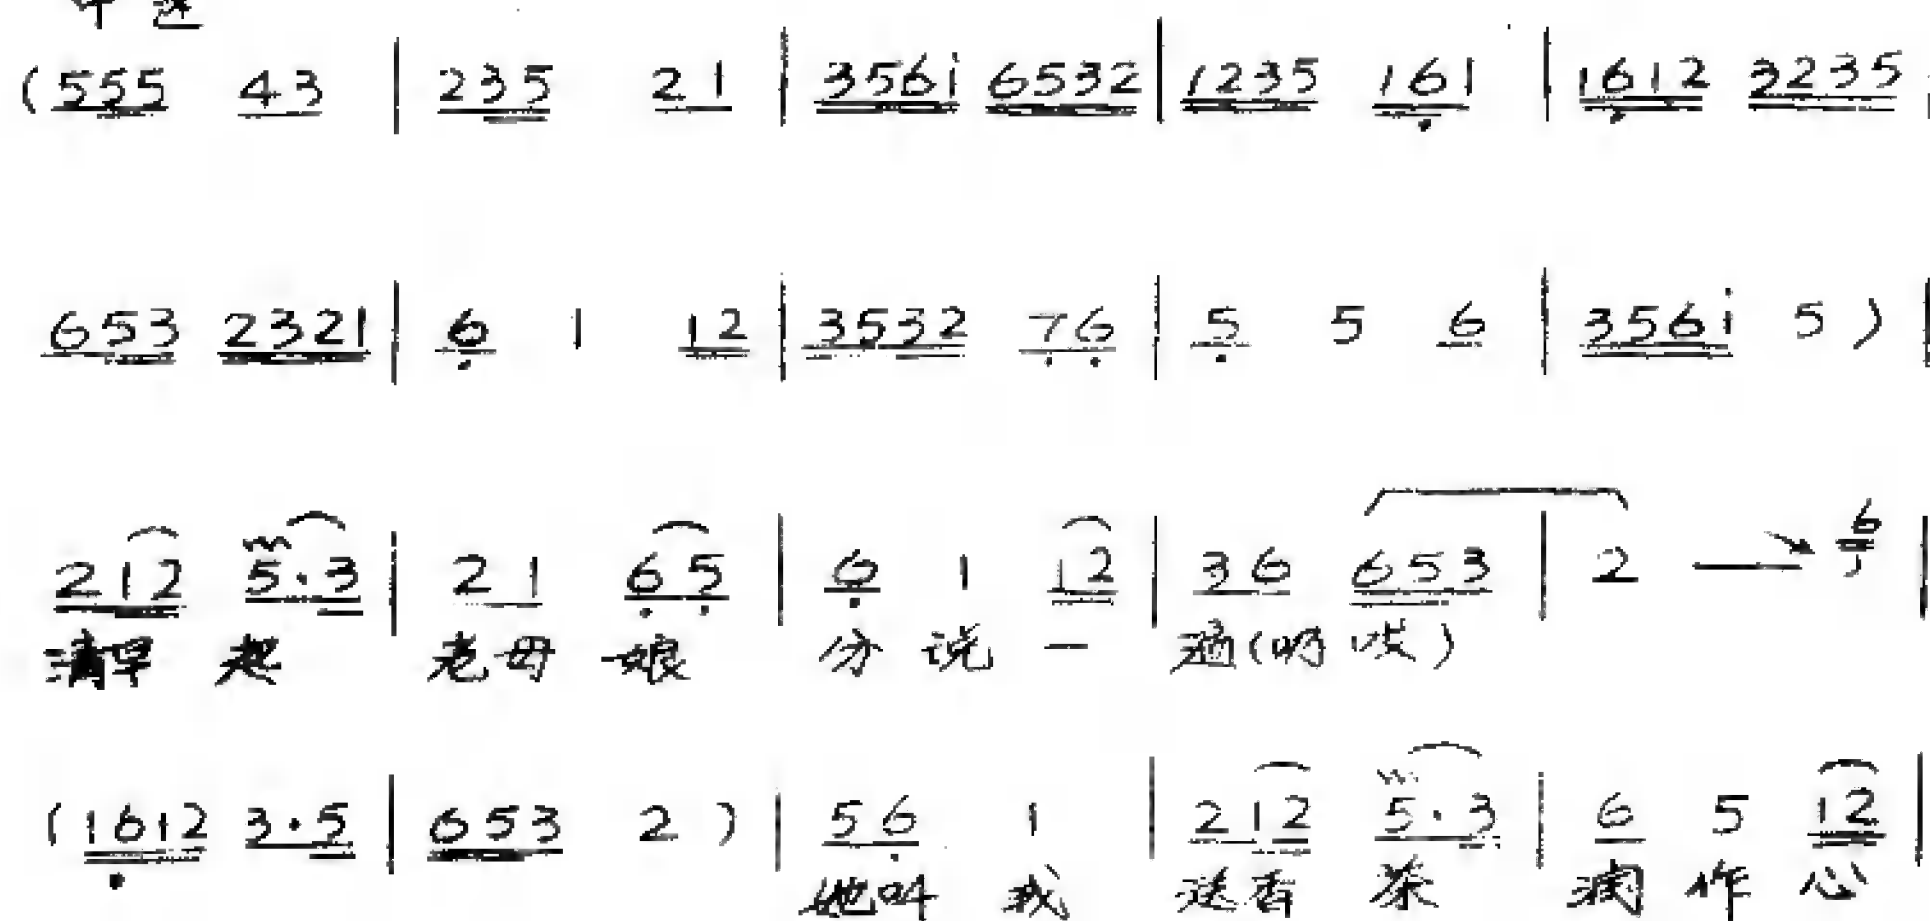 中速
(555 43 | 235 21 | 356i 6532 | 1235 161 | 1612 3235 |
653 2321 | 6 1 12 | 3532 76 | 5 5 6 | 356i 5 ) |
212 5·3 | 21 65 | 6 1 12 | 36 653 | 2 — 6 |
清早 起 老母 娘 分 说 一 遍(呀 哎)
(1612 3·5 | 653 2 ) | 56 1 | 212 5·3 | 6 5 12 |
她叫 我 送香 茶 润 作 心